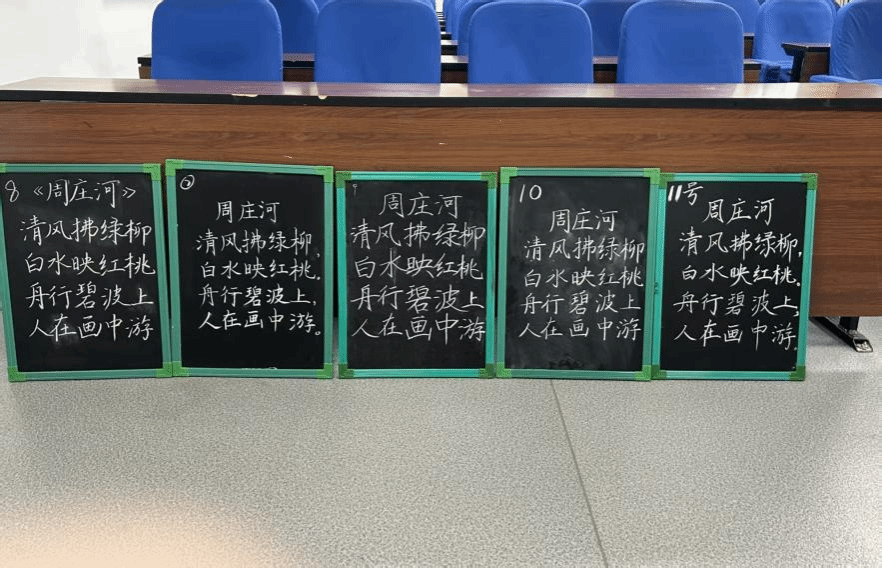 8 《周庄河》
清风拂绿柳
白水映红桃
舟行碧波上
人在画中游
周庄河
清风拂绿柳,
白水映红桃.
舟行碧波上,
人在画中游。
9
周庄河
清风拂绿柳
白水映红桃
舟行碧波上
人在画中游
10
周庄河
清风拂绿柳
白水映红桃
舟行碧波上
人在画中游
11号
周庄河
清风拂绿柳,
白水映红桃.
舟行碧波上,
人在画中游.